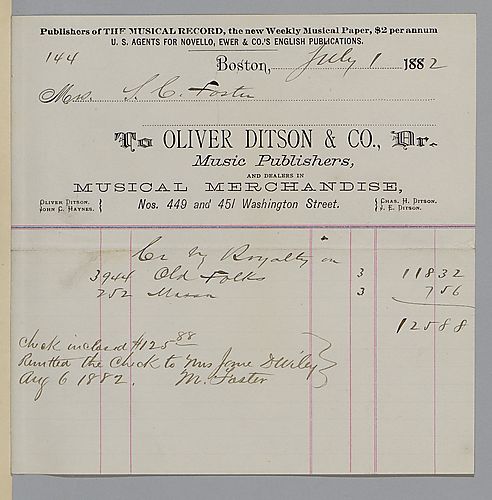 Publishers of THE MUSICAL RECORD, the new Weekly Musical Paper, $2 per annum
U. S. AGENTS FOR NOVELLO, EWER & CO.'S ENGLISH PUBLICATIONS.
144
Boston, July 1 1882
Mrs. S. C. Foster
To OLIVER DITSON & CO., Dr.
Music Publishers,
AND DEALERS IN
MUSICAL MERCHANDISE,
OLIVER DITSON. JOHN C. HAYNES. Nos. 449 and 451 Washington Street. CHAS. H. DITSON. J. E. DITSON.
Cr by Royalty on
3944 Old Folks 3 118 32
252 Massa 3 7 56
125 88
Check inclosed $125 88
Remitted the Check to Mrs Jane D Wiley
Aug 6 1882. M. Foster